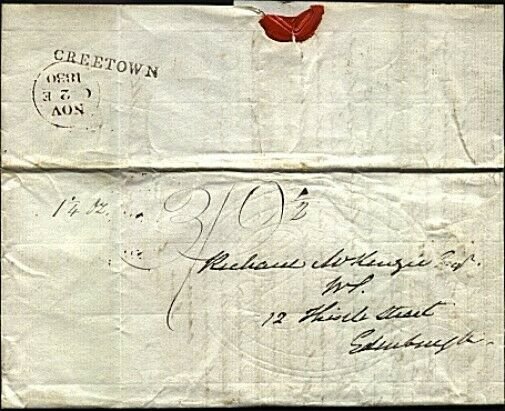 CREETOWN
NOV
C 2 E
1830
1/4 oz.
3/9 1/2
Richard McKenzie Esqr.
WS.
12 Thistle Street
Edinburgh